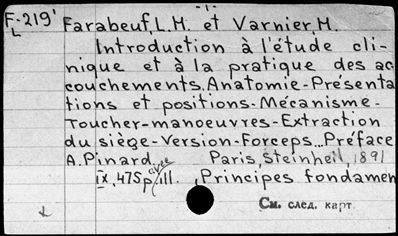 -1-
F-219'
L
Farabeuf, L.H. et Varnier, H.
Introduction à l'étude cli-
nique et à la pratique des ac
couchements. Anatomie-Présenta
tions et positions-Mécanisme-
Toucher-manoeuvres-Extraction
du siège-Version-Forceps...Préface
A. Pinard. Paris, Steinheil, 1891
IX, 475p. avec ill. Principes fondamen
См. след. карт.